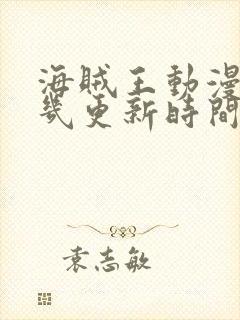 海賊王動漫
幾更新時間
袁志敏